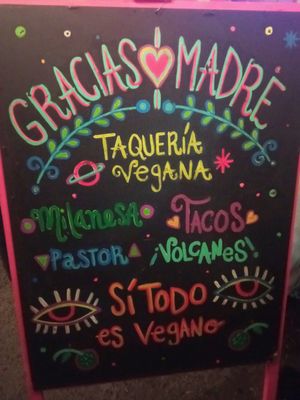 GRACIAS MADRE
TAQUERÍA
VEGANA
Milanesa TACOS
Pastor ¡VOLCANES!
SÍ TODO
es VEGANO